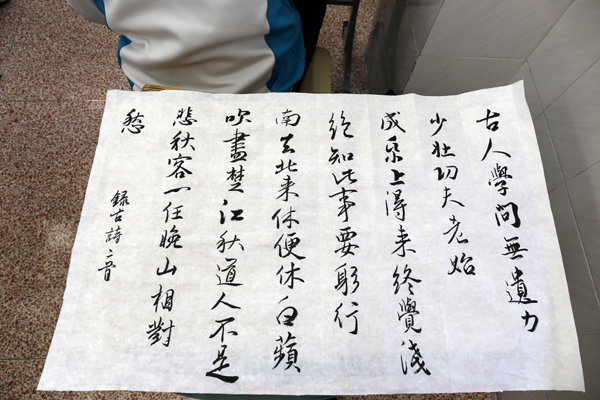 古人學問無遺力
少壮功夫老始
成紙上得来終覺淺
絕知此事要躬行
南去北来休便休白蘋
吹盡楚江秋道人不足
悲秋客一任晚山相對
愁
録古詩二首